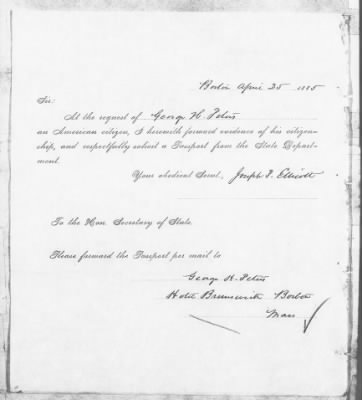 Boston April 25 1885
Sir:
At the request of George H. Peters
an American citizen, I herewith forward evidence of his citizen-
ship, and respectfully solicit a Passport from the State Depart-
ment.
Your obedient Servt, Joseph T. Elliott
To the Hon. Secretary of State.
Please forward the Passport per mail to
George H. Peters
Hotel Brunswick Boston
Mass